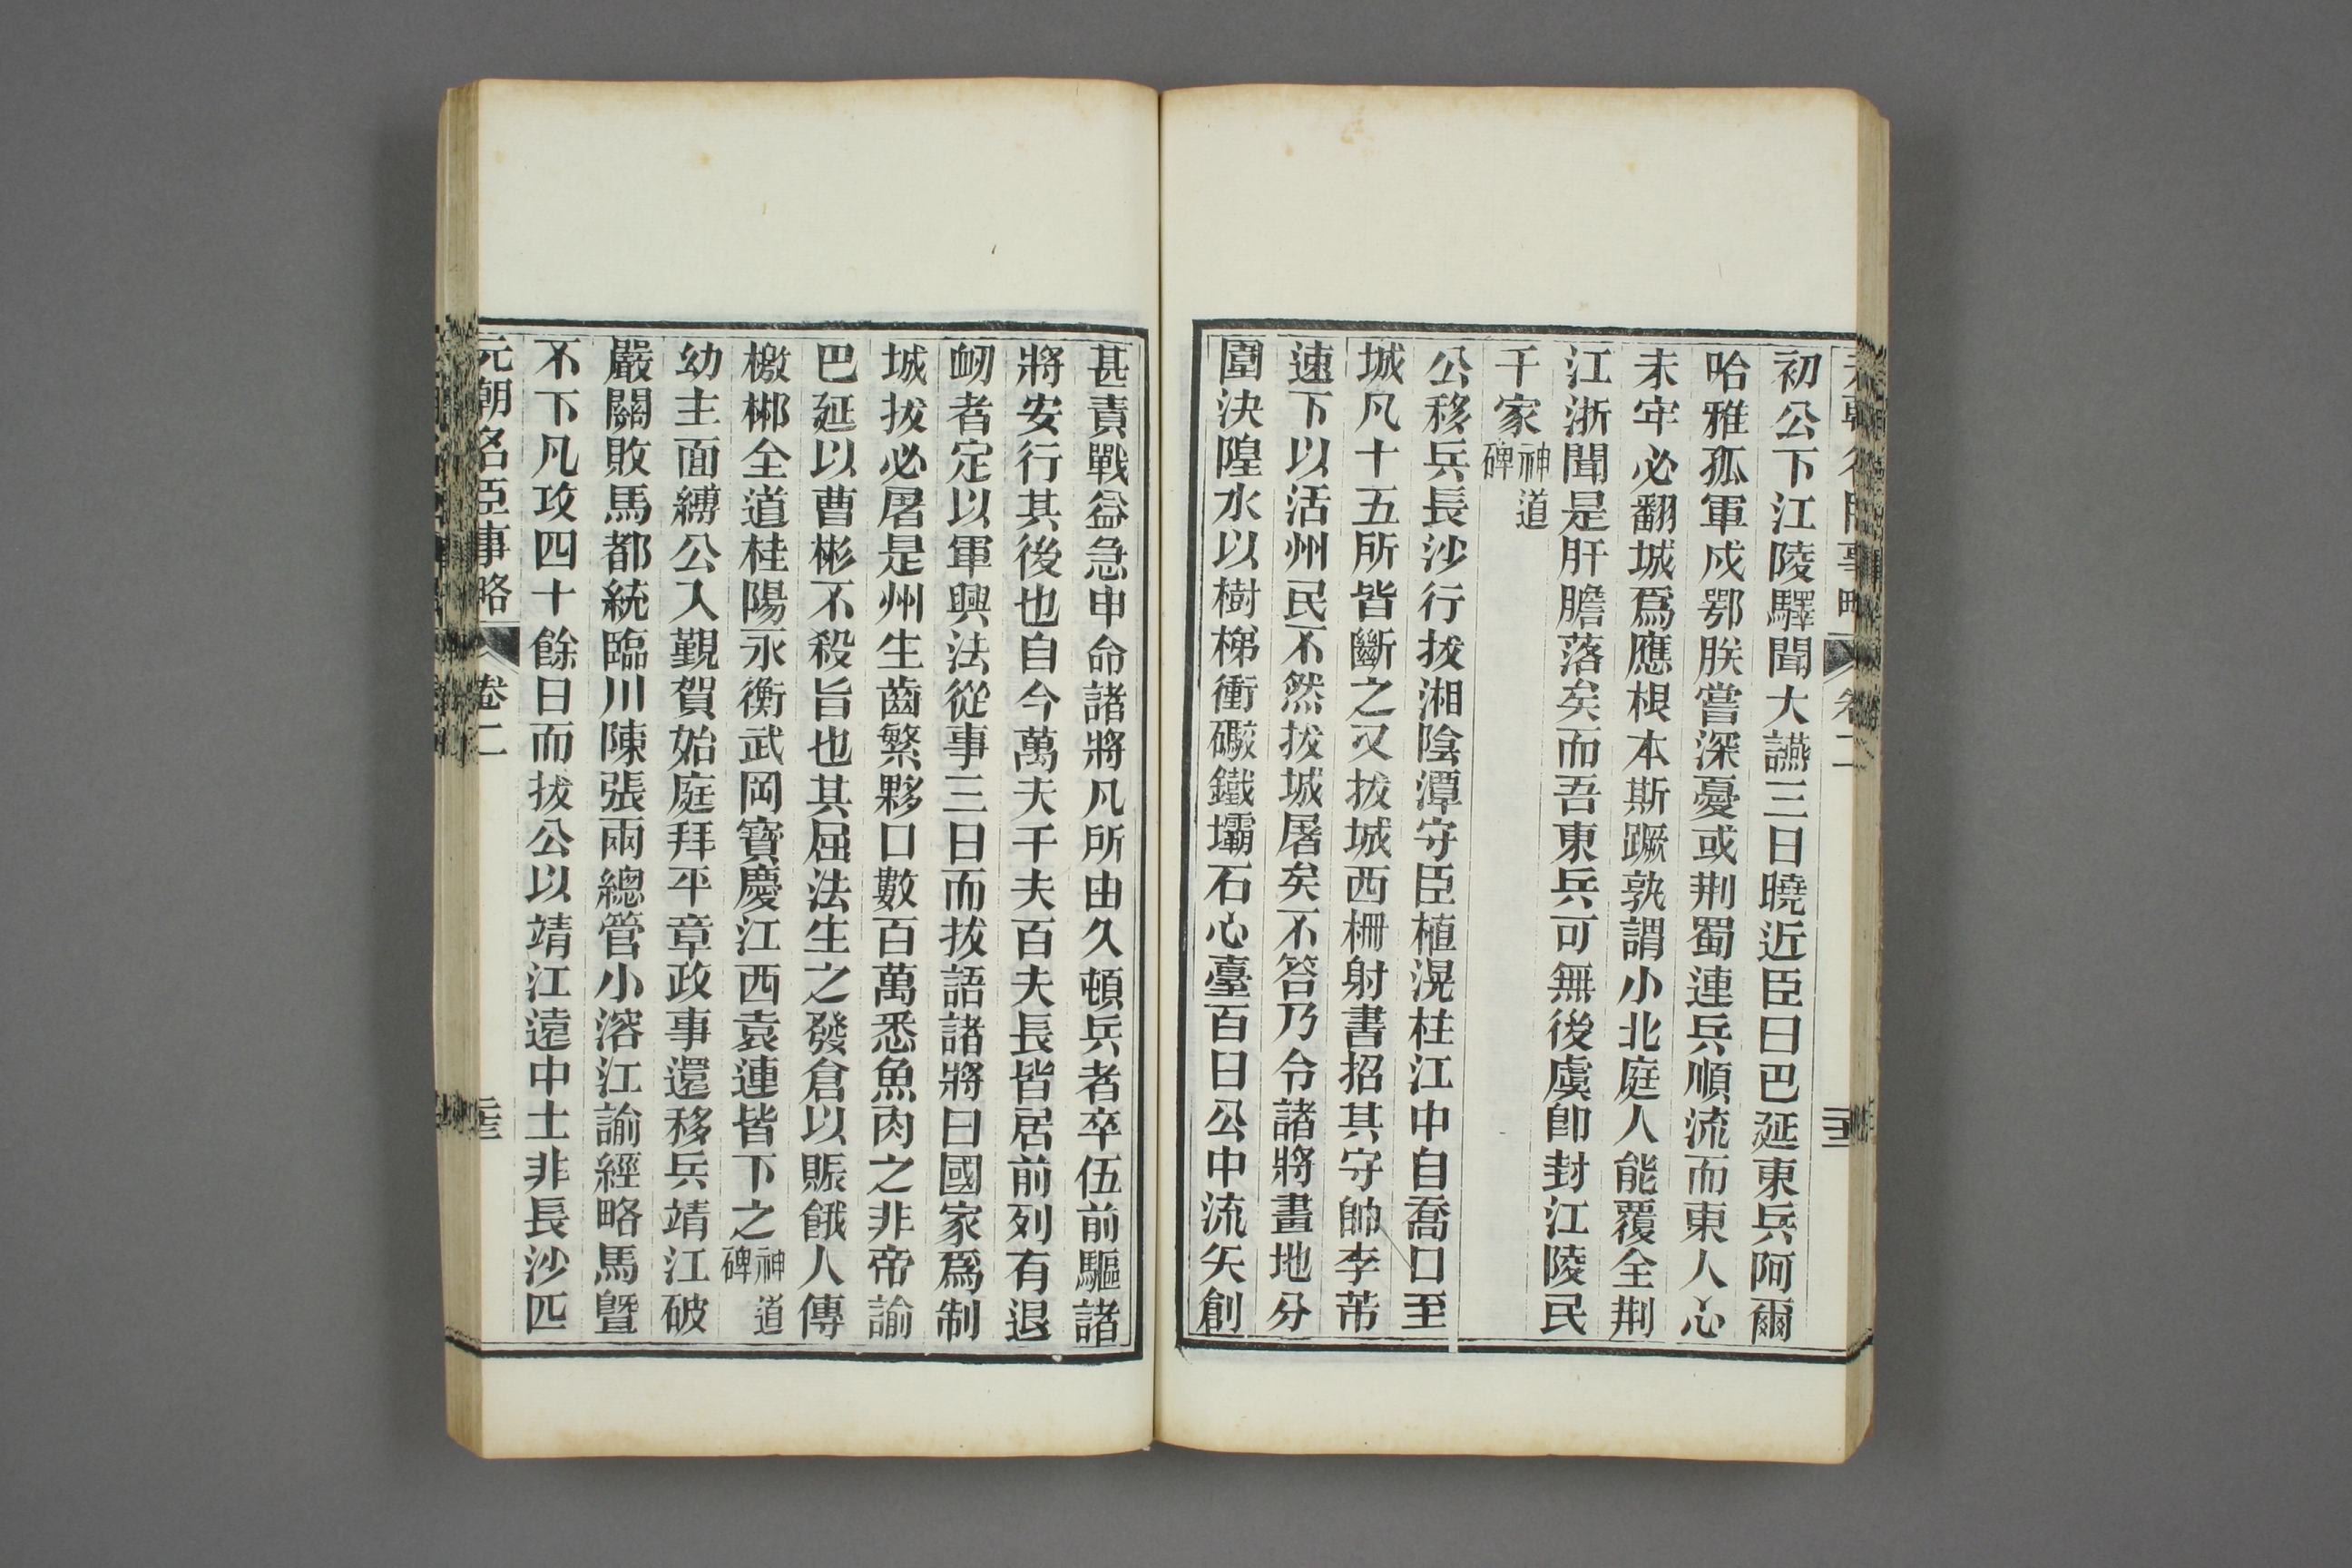 初公下江陵驛聞大讌三日曉近臣曰巴延東兵阿爾
哈雅孤軍戍鄂朕嘗深憂或荆蜀連兵順流而東人心
未牢必翻城爲應根本斯蹶孰謂小北庭人能覆全荆
江浙聞是肝膽落矣而吾東兵可無後虞卽封江陵民
千家神道碑
公移兵長沙行拔湘陰潭守臣植滉柱江中自喬口至
城凡十五所皆斷之又拔城西柵射書招其守帥李芾
速下以活州民不然拔城屠矣不答乃令諸將畫地分
圍決隍水以樹梯衝礮鐵壩石心臺百日公中流矢創
甚責戰益急申命諸將凡所由久頓兵者卒伍前驅諸
將安行其後也自今萬夫千夫百夫長皆居前列有退
衂者定以軍興法從事三日而拔語諸將曰國家爲制
城拔必屠是州生齒繁夥口數百萬悉魚肉之非帝諭
巴延以曹彬不殺旨也其屈法生之發倉以賑餓人傳
檄郴全道桂陽永衡武岡寶慶江西袁連皆下之神道碑
幼主面縛公入覲賀始庭拜平章政事還移兵靖江破
嚴關敗馬都統臨川陳張兩總管小溶江諭經略馬曁
不下凡攻四十餘日而拔公以靖江遠中土非長沙匹
元朝名臣事略 卷二